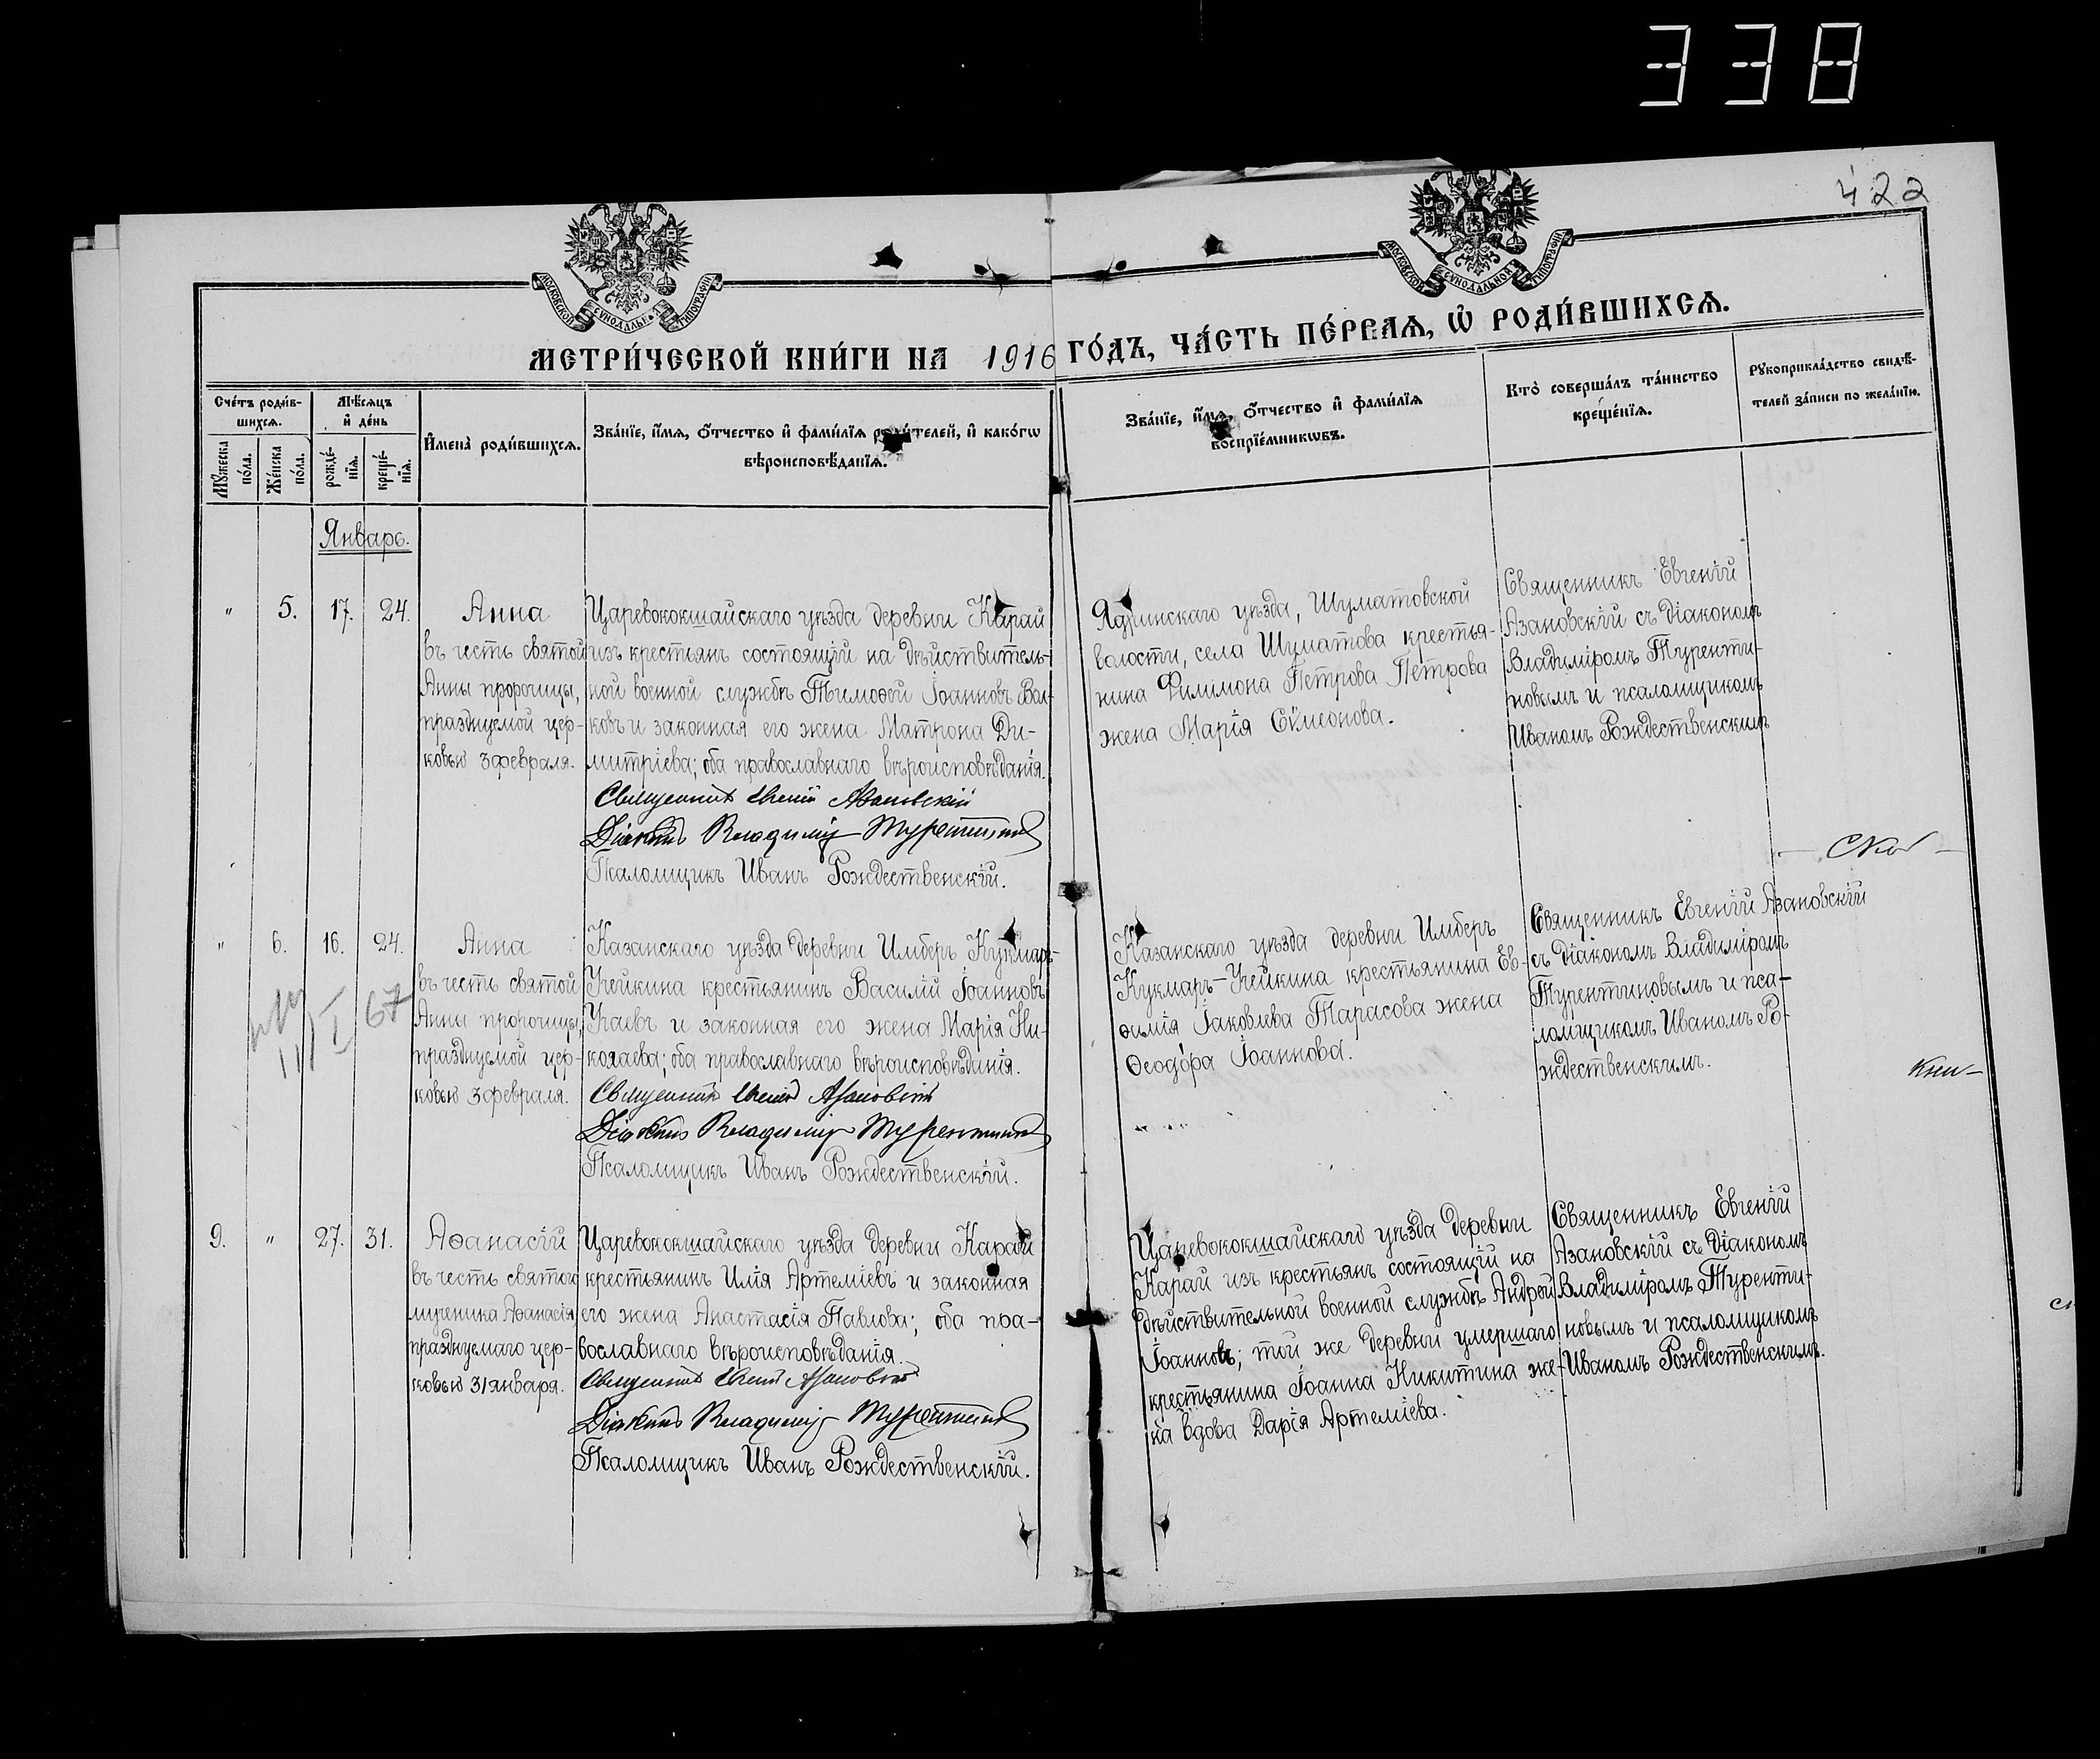 338
422
МОСКОВСКОЙ СѴНОДАЛЬНОЙ ТИПОГРАФІИ
МЕТРИ́ЧЕСКОЙ КНИ́ГИ НА 1916 ГО́ДЪ, ЧА́СТЬ ПЕ́РВАѦ, Ѡ҆ РОДИ́ВШИХСѦ.
Сче́тъ роди́в-
шихсѧ.
Мѣ́сѧцъ
и҆ де́нь
Мꙋ́жеска
по́ла.
Же́нска
по́ла.
рожде́-
нїѧ.
креще́-
нїѧ.
И҆мена̀ роди́вшихсѧ.
Зва́нїе, и҆́мѧ, ѻ҆́тчество и҆ фами́лїѧ роди́телей, и҆ како́гѡ
вѣроисповѣ́данїѧ.
Зва́нїе, и҆́мѧ, ѻ҆́тчество и҆ фами́лїѧ
воспрїе́мникѡвъ.
Кто̀ соверша́лъ та́инство
креще́нїѧ.
Рꙋкоприкла́дство свидѣ́-
телей за́писи по жела́нїю.
Январь.
" 5. 17. 24.
Анна
въ честь святой
Анны пророчицы,
празднуемой цер-
ковью 3 февраля.
Царевококшайскаго уѣзда деревни Карай
изъ крестьянъ состоящій на дѣйствитель-
ной военной службѣ Тимоѳей Іоанновъ Вол-
ковъ и законная его жена Матрона Ди-
митріева; оба православнаго вѣроисповѣданія.
Священникъ Евгеній Азановскій
Діаконъ Владиміръ Турентиновъ
Псаломщикъ Иванъ Рождественскій.
Ядринскаго уѣзда, Шуматовской
волости, села Шуматова крестья-
нина Филимона Петрова Петрова
жена Марія Сѵмеонова.
Священникъ Евгеній
Азановскій съ діакономъ
Владиміромъ Туренти-
новымъ и псаломщикомъ
Иваномъ Рождественскимъ
" 6. 16. 24.
Анна
въ честь святой
Анны пророчицы,
празднуемой цер-
ковью 3 февраля.
11/I 67
Казанскаго уѣзда деревни Имберъ Кукмаръ-
Учейкина крестьянинъ Василій Іоанновъ
Учаевъ и законная его жена Марія Ни-
колаева; оба православнаго вѣроисповѣданія.
Священникъ Евгеній Азановскій
Діаконъ Владиміръ Турентиновъ
Псаломщикъ Иванъ Рождественскій.
Казанскаго уѣзда деревни Имберъ
Кукмаръ-Учейкина крестьянина Ев-
ѳимія Іаковлева Тарасова жена
Ѳеодора Іоаннова.
Священникъ Евгеній Азановскій
съ діакономъ Владиміромъ
Турентиновымъ и пса-
ломщикомъ Иваномъ Ро-
ждественскимъ.
кни-
9. " 27. 31.
Аѳанасій
въ честь святого
мученика Аѳанасія,
празднуемаго цер-
ковью 31 января.
Царевококшайскаго уѣзда деревни Карай
крестьянинъ Илія Артеміевъ и законная
его жена Анастасія Павлова; оба пра-
вославнаго вѣроисповѣданія.
Священникъ Евгеній Азановскій
Діаконъ Владиміръ Турентиновъ
Псаломщикъ Иванъ Рождественскій.
Царевококшайскаго уѣзда деревни
Карай изъ крестьянъ состоящій на
дѣйствительной военной службѣ Андрей
Іоанновъ; той же деревни умершаго
крестьянина Іоанна Никитина же-
на вдова Дарія Артеміева.
Священникъ Евгеній
Азановскій съ діакономъ
Владиміромъ Туренти-
новымъ и псаломщикомъ
Иваномъ Рождественскимъ.